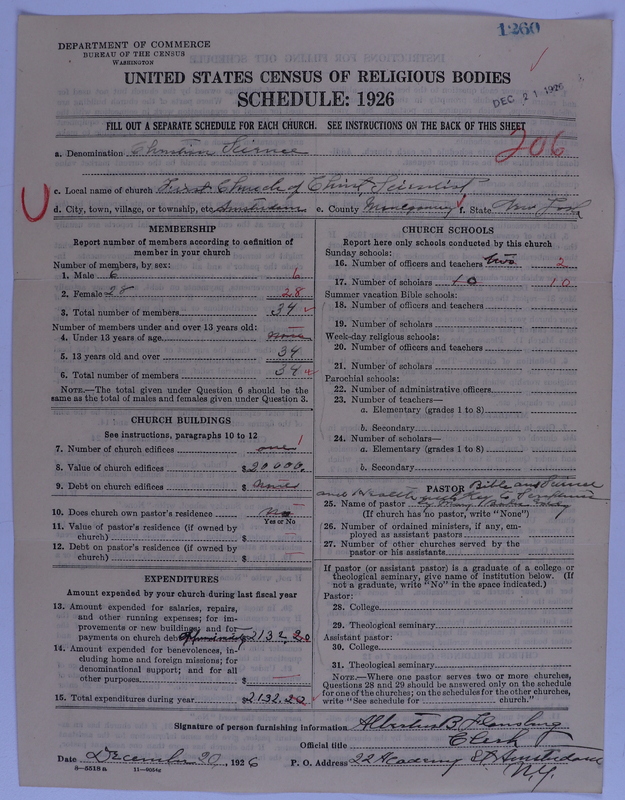 1260
DEPARTMENT OF COMMERCE
BUREAU OF THE CENSUS
WASHINGTON
UNITED STATES CENSUS OF RELIGIOUS BODIES
SCHEDULE: 1926
DEC 21 1926
FILL OUT A SEPARATE SCHEDULE FOR EACH CHURCH. SEE INSTRUCTIONS ON THE BACK OF THIS SHEET
206
a. Denomination Christian Science
c. Local name of church First Church of Christ, Scientist
d. City, town, village, or township, etc. Amsterdam e. County Montgomery f. State New York
MEMBERSHIP
Report number of members according to definition of
member in your church
Number of members, by sex:
1. Male 6 6
2. Female 28 28
3. Total number of members 34
Number of members under and over 13 years old:
4. Under 13 years of age None
5. 13 years old and over 34
6. Total number of members 34
NOTE.—The total given under Question 6 should be the
same as the total of males and females given under Question 3.
CHURCH BUILDINGS
See instructions, paragraphs 10 to 12
7. Number of church edifices one 1
8. Value of church edifices $20000.
9. Debt on church edifices $ None
10. Does church own pastor's residence No
Yes or No
11. Value of pastor's residence (if owned by
church) $
12. Debt on pastor's residence (if owned by
church) $
EXPENDITURES
Amount expended by your church during last fiscal year
13. Amount expended for salaries, repairs,
and other running expenses; for im-
provements or new buildings; and for
payments on church debt 2132.20
14. Amount expended for benevolences, in-
cluding home and foreign missions; for
denominational support; and for all
other purposes $
15. Total expenditures during year 2132.20
CHURCH SCHOOLS
Report here only schools conducted by this church
Sunday schools:
16. Number of officers and teachers two 2
17. Number of scholars 10 10
Summer vacation Bible schools:
18. Number of officers and teachers
19. Number of scholars
Week-day religious schools:
20. Number of officers and teachers
21. Number of scholars
Parochial schools:
22. Number of administrative officers
23. Number of teachers—
a. Elementary (grades 1 to 8)
b. Secondary
24. Number of scholars—
a. Elementary (grades 1 to 8)
b. Secondary
PASTOR Bible and Science
and Health with Key to Scriptures
25. Name of pastor by Mary Baker Eddy
(If church has no pastor, write "None")
26. Number of ordained ministers, if any, em-
ployed as assistant pastors
27. Number of other churches served by the
pastor or his assistants
If pastor (or assistant pastor) is a graduate of a college or
theological seminary, give name of institution below. (If
not a graduate, write "No" in the space indicated.)
Pastor:
28. College
29. Theological seminary
Assistant pastor:
30. College
31. Theological seminary
NOTE.—Where one pastor serves two or more churches,
Questions 28 and 29 should be answered only on the schedule
for one of the churches; on the schedules for the other churches,
write "See schedule for church."
Signature of person furnishing information B.
Official title Clerk
Date December 20, 1926 P. O. Address 22 Academy St. Amsterdam
N.Y.
8—5518 a 11—9054